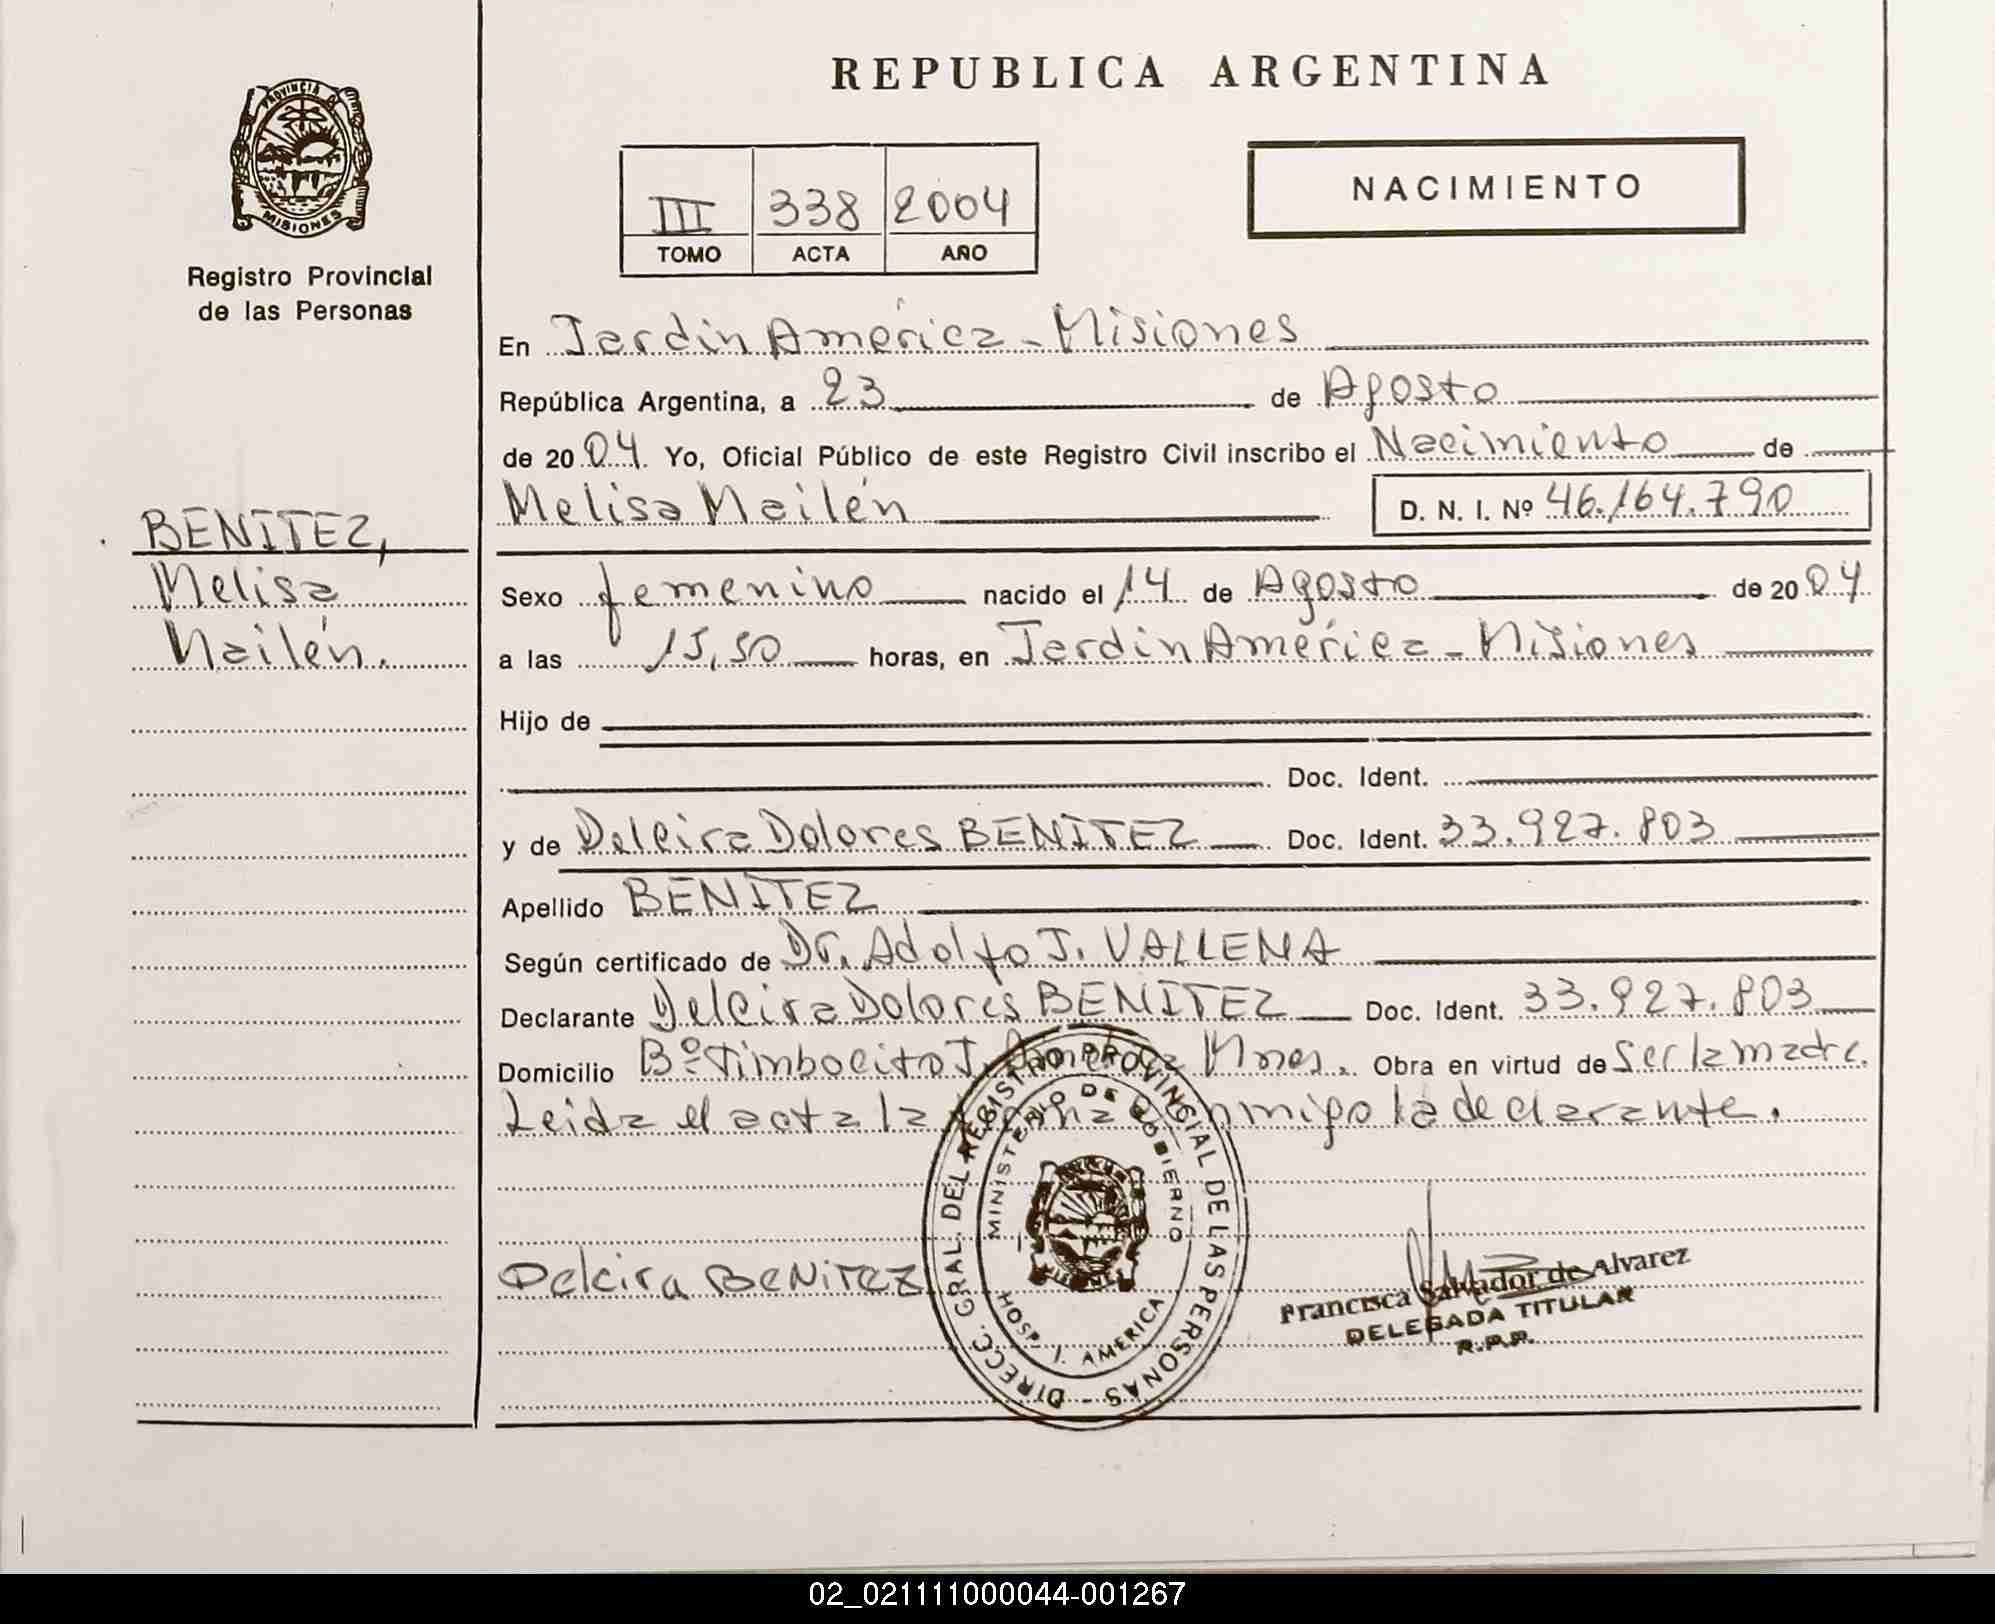 PROVINCIA DE
MISIONES
Registro Provincial
de las Personas
REPUBLICA ARGENTINA
III 338 2004
TOMO ACTA AÑO
NACIMIENTO
En Jardin América - Misiones
República Argentina, a 23 de Agosto
de 2004. Yo, Oficial Público de este Registro Civil inscribo el Nacimiento de
Melisa Mailén D. N. I. Nº 46.164.790
BENITEZ,
Melisa
Mailén.
Sexo femenino nacido el 14 de Agosto de 2004
a las 15,50 horas, en Jardin América - Misiones
Hijo de
Doc. Ident.
y de Delcira Dolores BENITEZ Doc. Ident. 33.927.803
Apellido BENITEZ
Según certificado de Dr. Adolfo J. VALLENA
Declarante Delcira Dolores BENITEZ Doc. Ident. 33.927.803
Domicilio Bº Timbocito J. América Mnes. Obra en virtud de ser la madre.
Leida el acta la firma conmigo la declarante.
Delcira BENITEZ
DIRECC. GRAL. DEL REGISTRO PROVINCIAL DE LAS PERSONAS -
MINISTERIO DE GOBIERNO
HOSP. J. AMERICA
Francisca Salvador de Alvarez
DELEGADA TITULAR
R.P.P.
02_021111000044-001267